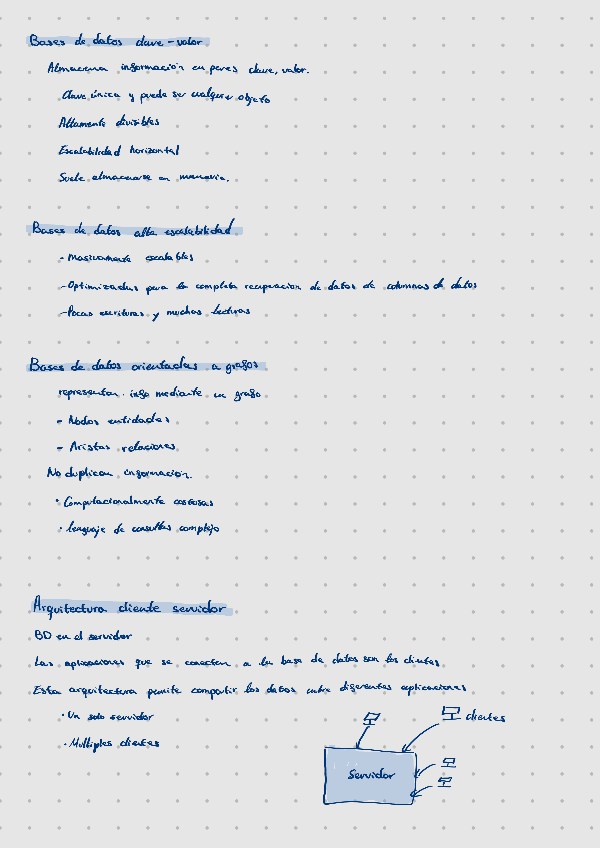 Bases de datos clave-valor
Almacena información en pares clave, valor.
Clave única y puede ser cualquier objeto
Altamente divisibles
Escalabilidad horizontal
Suele almacenarse en memoria.
Bases de datos alta escalabilidad
- Masivamente escalables
- Optimizadas para la completa recuperacion de datos de columnas de datos
- Pocas escrituras y muchas lecturas
Bases de datos orientadas a grafos
representan info mediante un grafo
- Nodos entidades
- Aristas relaciones
No duplican información.
· Computacionalmente costosas
· lenguaje de consultas complejo
Arquitectura cliente servidor
BD en el servidor
Las aplicaciones que se conectan a la base de datos son los clientes
Esta arquitectura permite compartir los datos entre diferentes aplicaciones
· Un solo servidor
· Multiples clientes
clientes
Servidor